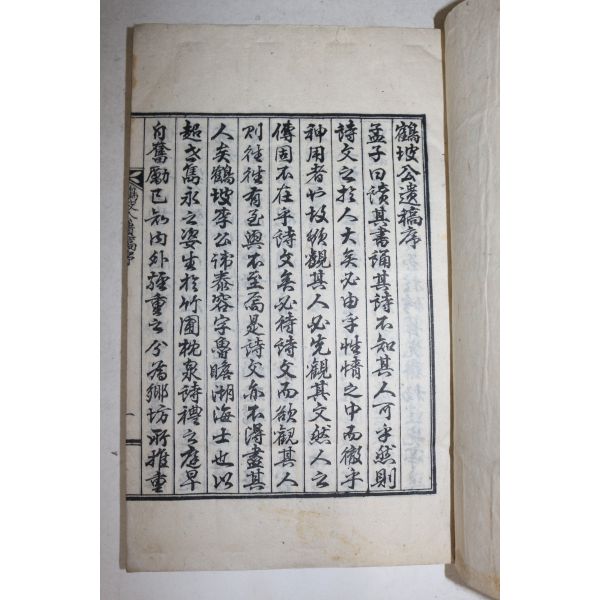 鶴坡公遺稿序
孟子曰讀其書誦其詩不知其人可乎然則
詩文之於人大矣必由乎性情之中而徹乎
神用者也故欲觀其人必先觀其文然人之
傳固不在乎詩文矣必待詩文而欲觀其人
則徃徃有至與不至焉是詩文亦不得盡其
人矣鶴坡李公諱泰容字魯瞻湖海士也以
超世雋永之姿生於竹圃枕泉詩禮之庭早
自奮勵已知內外輕重之分爲鄉坊所推重
鶴坡公遺稿序
一